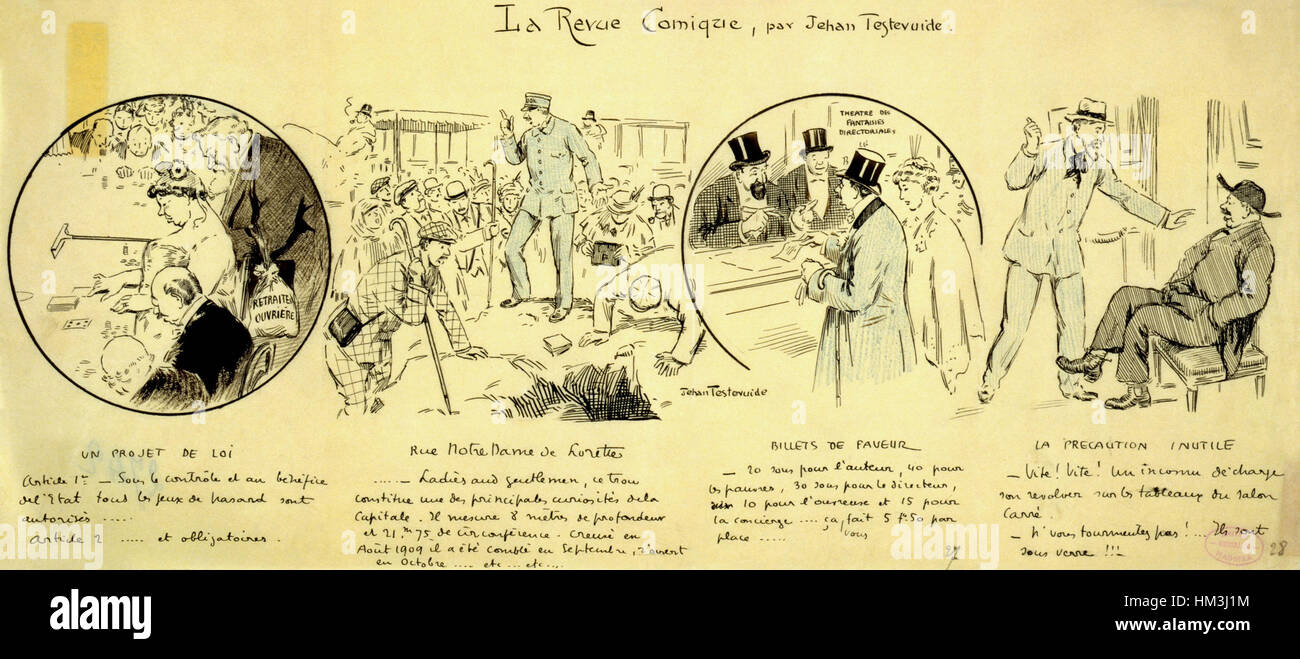 La Revue Comique, par Jehan Testevuide.
THEATRE DES
FANTAISIES
DIRECTORIALES
RETRAITES
OUVRIERE
Jehan Testevuide
UN PROJET DE LOI
Article 1er — Sous le contrôle et au bénéfice
de l'Etat tous les jeux de hasard sont
autorisés .....
Article 2 ..... et obligatoires.
Rue Notre Dame de Lorette
..... — Ladies and gentlemen, ce trou
constitue une des principales curiosités de la
Capitale. Il mesure 8 mètres de profondeur
et 21.m75 de circonférence. Creusé en
Août 1909 il a été comblé en Septembre, r'ouvert
en Octobre .... etc ... etc....
BILLETS DE FAVEUR
— 20 sous pour l'auteur, 40 pour
les pauvres, 30 sous pour le directeur,
10 pour l'ouvreuse et 15 pour
la concierge .... ça vous fait 5 f. 50 par
place .....
LA PRECAUTION INUTILE
— Vite! Vite! Un inconnu décharge
son revolver sur les tableaux du Salon
Carré
— N'vous tourmentez pas!... Ils sont
sous verre!!!
27
28
a alamy stock photo
HM3J1M
www.alamy.com